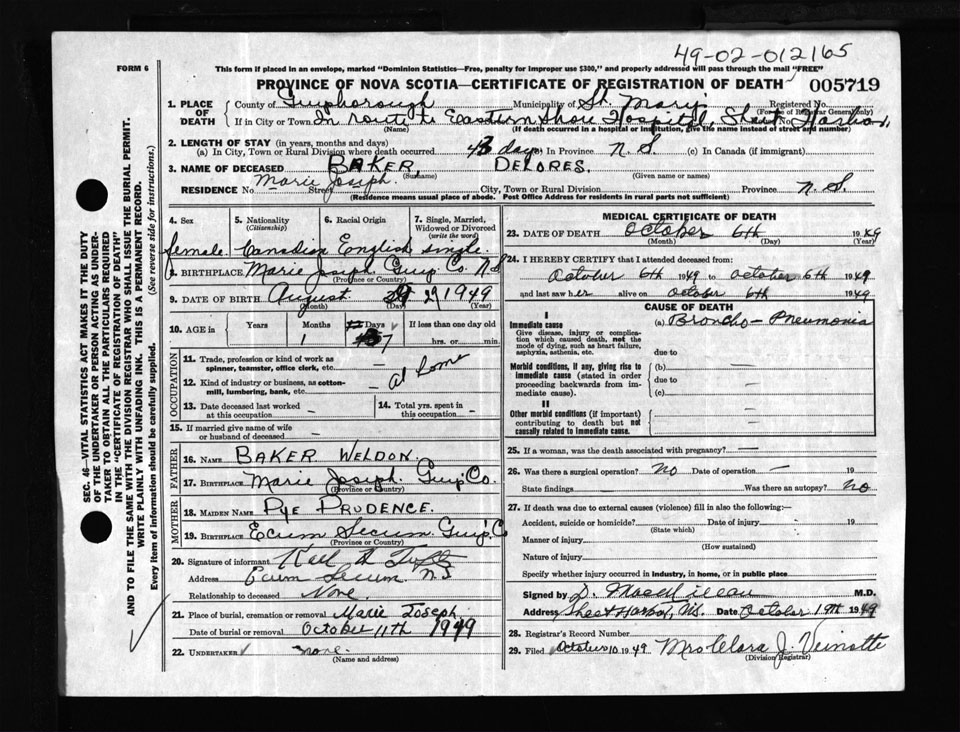 49-02-012165
FORM 6
This form if placed in an envelope, marked "Dominion Statistics—Free, penalty for improper use $300," and properly addressed will pass through the mail "FREE"
PROVINCE OF NOVA SCOTIA—CERTIFICATE OF REGISTRATION OF DEATH 005719
SEC. 46—VITAL STATISTICS ACT MAKES IT THE DUTY
OF THE UNDERTAKER OR PERSON ACTING AS UNDER-
TAKER TO OBTAIN ALL THE PARTICULARS REQUIRED
IN THE "CERTIFICATE OF REGISTRATION OF DEATH"
AND TO FILE THE SAME WITH THE DIVISION REGISTRAR WHO SHALL ISSUE THE BURIAL PERMIT.
WRITE PLAINLY WITH UNFADING INK. THIS IS A PERMANENT RECORD.
Every item of information should be carefully supplied. (See reverse side for instructions.)
1. PLACE OF DEATH
County of Guysborough Municipality of St. Mary's Registered No.
(For use of Registrar General only)
If in City or Town In route to Eastern Shore Hospital, Sheet Harbor,
(Name) (If death occurred in a hospital or institution, give the name instead of street and number)
2. LENGTH OF STAY (in years, months and days)
(a) In City, Town or Rural Division where death occurred 43 days (b) In Province N. S. (c) In Canada (if immigrant)
3. NAME OF DECEASED BAKER, DELORES.
(Surname) (Given name or names)
RESIDENCE No. Marie Joseph. Street City, Town or Rural Division Province N. S.
(Residence means usual place of abode. Post Office Address for residents in rural parts not sufficient)
4. Sex
5. Nationality (Citizenship)
6. Racial Origin
7. Single, Married, Widowed or Divorced (write the word)
female. Canadian English single.
8. BIRTHPLACE Marie Joseph Guys. Co. N.S
(Province or Country)
9. DATE OF BIRTH August 29 1949
(Month) (Day) (Year)
10. AGE in Years Months Days If less than one day old
1 7 hrs. or min.
OCCUPATION
11. Trade, profession or kind of work as spinner, teamster, office clerk, etc. —
12. Kind of industry or business, as cotton-mill, lumbering, bank, etc. — at home
13. Date deceased last worked at this occupation —
14. Total yrs. spent in this occupation —
15. If married give name of wife or husband of deceased —
FATHER
16. NAME BAKER WELDON.
17. BIRTHPLACE Marie Joseph. Guys Co.
(Province or Country)
MOTHER
18. MAIDEN NAME PYE PRUDENCE.
19. BIRTHPLACE Ecum Secum. Guys. C
(Province or Country)
20. Signature of informant
Address Ecum Secum N.S
Relationship to deceased None.
21. Place of burial, cremation or removal Marie Joseph
Date of burial or removal October 11th 1949
22. UNDERTAKER none.
(Name and address)
MEDICAL CERTIFICATE OF DEATH
23. DATE OF DEATH October 6th 1949
(Month) (Day) (Year)
24. I HEREBY CERTIFY that I attended deceased from:
October 6th 1949 to October 6th 1949
and last saw her alive on October 6th 1949
CAUSE OF DEATH
I
Immediate cause (a) Broncho-Pneumonia
Give disease, injury or complication which caused death, not the mode of dying, such as heart failure, asphyxia, asthenia, etc. due to
Morbid conditions, if any, giving rise to immediate cause (stated in order proceeding backwards from immediate cause). (b) —
due to —
(c) —
II
Other morbid conditions (if important) contributing to death but not causally related to immediate cause. —
25. If a woman, was the death associated with pregnancy? —
26. Was there a surgical operation? No Date of operation — 19
State findings — Was there an autopsy? No
27. If death was due to external causes (violence) fill in also the following:—
Accident, suicide or homicide? Date of injury — 19
(State which)
Manner of injury
(How sustained)
Nature of injury
Specify whether injury occurred in industry, in home, or in public place
Signed by M.D.
Address Sheet Harbor, N.S. Date October 19th 1949
28. Registrar's Record Number
29. Filed October 10 1949 Mrs Clara J. Veinotte
(Division Registrar)